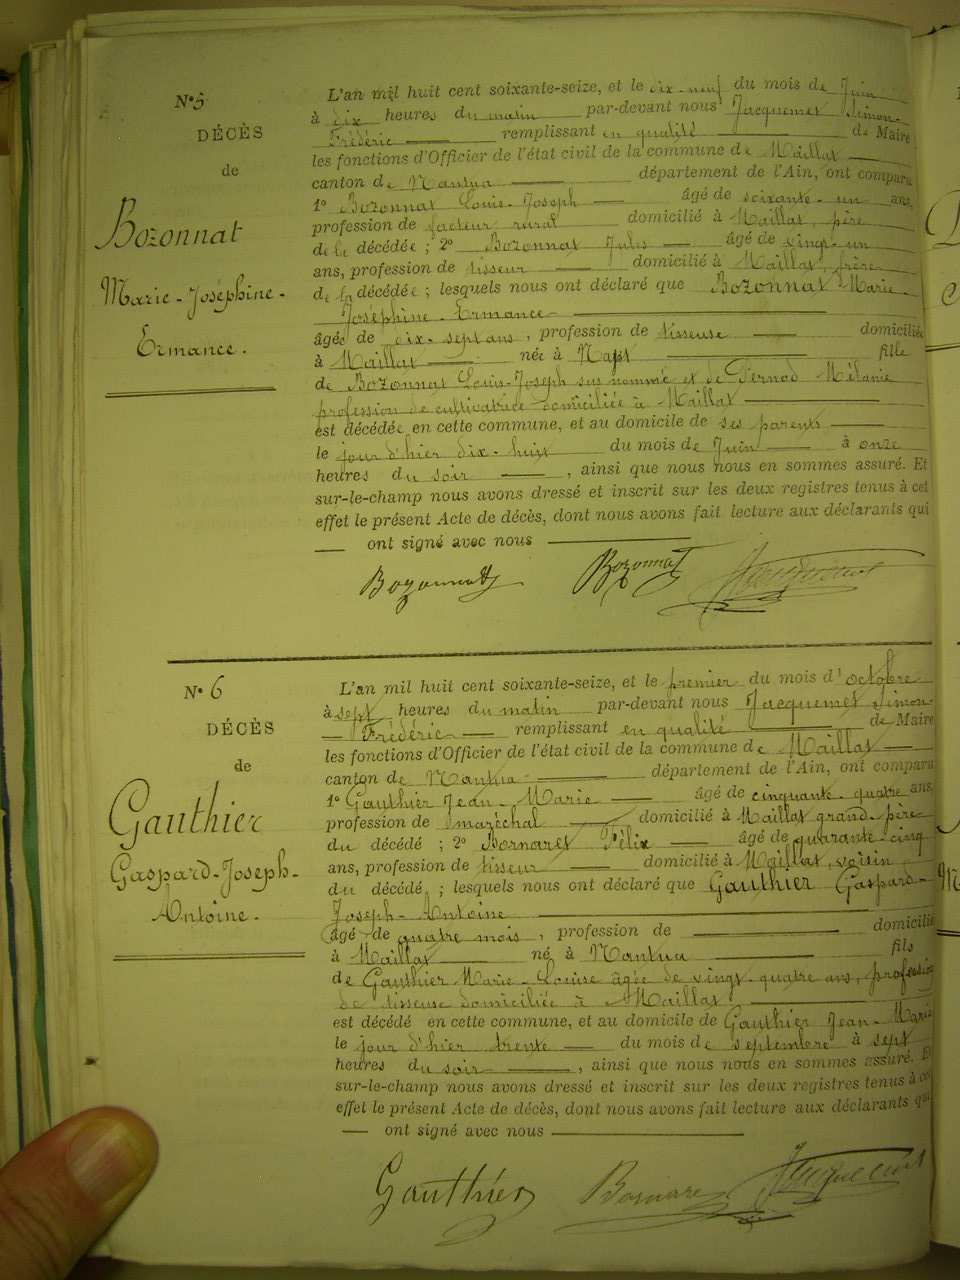 N° 5
DÉCÈS
de
Bozonnat
Marie-Joséphine-
Ermance.
L'an mil huit cent soixante-seize, et le dix-neuf du mois de Juin
à dix heures du matin par-devant nous Jacquemet Simon-
Frédéric remplissant en qualité de Maire
les fonctions d'Officier de l'état civil de la commune de Maillat
canton de Nantua département de l'Ain, ont comparu
1° Bozonnat Louis-Joseph âgé de soixante-un ans,
profession de facteur rural domicilié à Maillat, père
de la décédée ; 2° Bozonnat Jules âgé de vingt-un
ans, profession de tisseur domicilié à Maillat, frère
de la décédée ; lesquels nous ont déclaré que Bozonnat Marie-
Joséphine-Ermance
âgée de dix-sept ans, profession de tisseuse domiciliée
à Maillat née à fille
de Bozonnat Louis-Joseph sus nommé et de Pernod Mélanie
profession de cultivatrice domiciliée à Maillat
est décédée en cette commune, et au domicile de ses parents
le jour d'hier dix-huit du mois de Juin à onze
heures du soir, ainsi que nous nous en sommes assuré. Et
sur-le-champ nous avons dressé et inscrit sur les deux registres tenus à cet
effet le présent Acte de décès, dont nous avons fait lecture aux déclarants qui
ont signé avec nous
Bozonnat Bozonnat Jacquemet
N° 6
DÉCÈS
de
Gauthier
Gaspard-Joseph-
Antoine.
L'an mil huit cent soixante-seize, et le premier du mois d'octobre
à sept heures du matin par-devant nous Jacquemet Simon-
Frédéric remplissant en qualité de Maire
les fonctions d'Officier de l'état civil de la commune de Maillat
canton de Nantua département de l'Ain, ont comparu
1° Gauthier Jean-Marie âgé de cinquante-quatre ans,
profession de maréchal domicilié à Maillat grand-père
du décédé ; 2° Bornaret Félix âgé de quarante-cinq
ans, profession de tisseur domicilié à Maillat, voisin
du décédé ; lesquels nous ont déclaré que Gauthier Gaspard-
Joseph-Antoine
âgé de quatre mois, profession de domicilié
à Maillat né à Nantua fils
de Gauthier Marie-Louise âgée de vingt-quatre ans, profession
de tisseuse domiciliée à Maillat
est décédé en cette commune, et au domicile de Gauthier Jean-Marie
le jour d'hier trente du mois de septembre à sept
heures du soir, ainsi que nous nous en sommes assuré. Et
sur-le-champ nous avons dressé et inscrit sur les deux registres tenus à cet
effet le présent Acte de décès, dont nous avons fait lecture aux déclarants qui
ont signé avec nous
Gauthier Bornaret Jacquemet